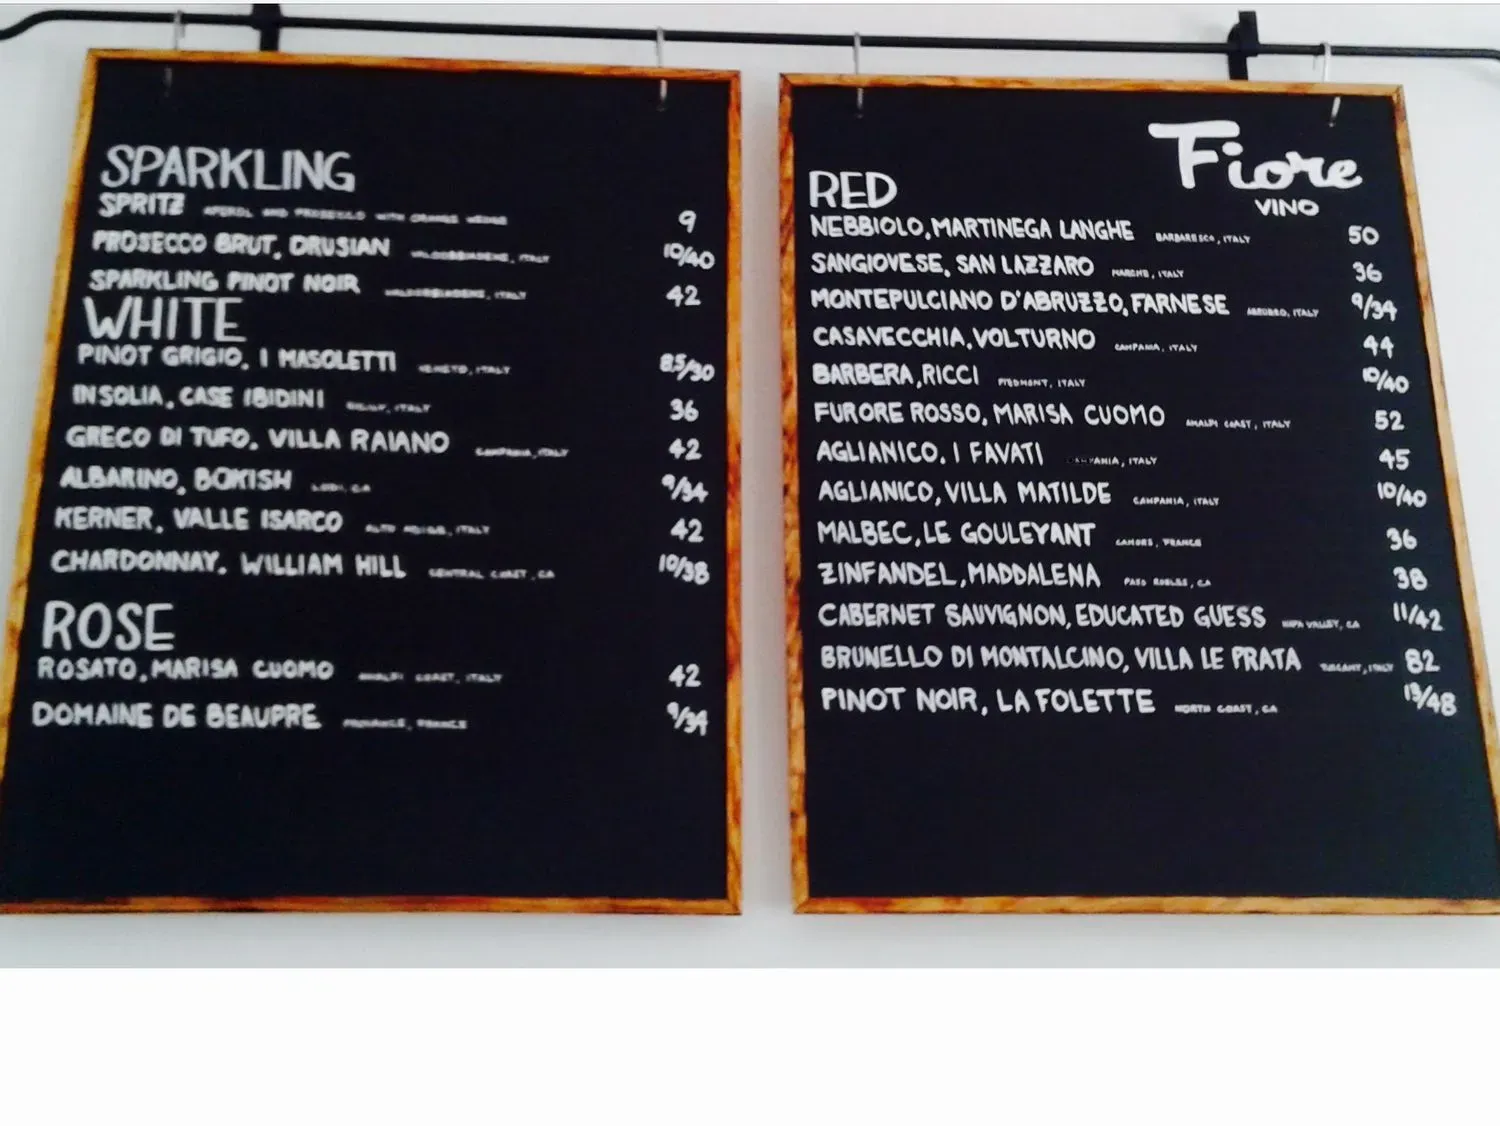 SPARKLING
SPRITZ APEROL AND PROSECCO WITH ORANGE WEDGE 9
PROSECCO BRUT, DRUSIAN VALDOBBIADENE, ITALY 10/40
SPARKLING PINOT NOIR VALDOBBIADENE, ITALY 42
WHITE
PINOT GRIGIO, I MASOLETTI VENETO, ITALY 8.5/30
INSOLIA, CASE IBIDINI SICILY, ITALY 36
GRECO DI TUFO, VILLA RAIANO CAMPANIA, ITALY 42
ALBARINO, BOKISH LODI, CA 9/34
KERNER, VALLE ISARCO ALTO ADIGE, ITALY 42
CHARDONNAY, WILLIAM HILL CENTRAL COAST, CA 10/38
ROSE
ROSATO, MARISA CUOMO AMALFI COAST, ITALY 42
DOMAINE DE BEAUPRE PROVANCE, FRANCE 9/34
Fiore
VINO
RED
NEBBIOLO, MARTINEGA LANGHE BARBARESCO, ITALY 50
SANGIOVESE, SAN LAZZARO MARCHE, ITALY 36
MONTEPULCIANO D'ABRUZZO, FARNESE ABRUZZO, ITALY 9/34
CASAVECCHIA, VOLTURNO CAMPANIA, ITALY 44
BARBERA, RICCI PIEDMONT, ITALY 10/40
FURORE ROSSO, MARISA CUOMO AMALFI COAST, ITALY 52
AGLIANICO, I FAVATI ITALY 45
AGLIANICO, VILLA MATILDE CAMPANIA, ITALY 10/40
MALBEC, LE GOULEYANT CAHORS, FRANCE 36
ZINFANDEL, MADDALENA PASO ROBLES, CA 38
CABERNET SAUVIGNON, EDUCATED GUESS NAPA VALLEY, CA 11/42
BRUNELLO DI MONTALCINO, VILLA LE PRATA TUSCANY, ITALY 82
PINOT NOIR, LA FOLETTE NORTH COAST, CA 13/48